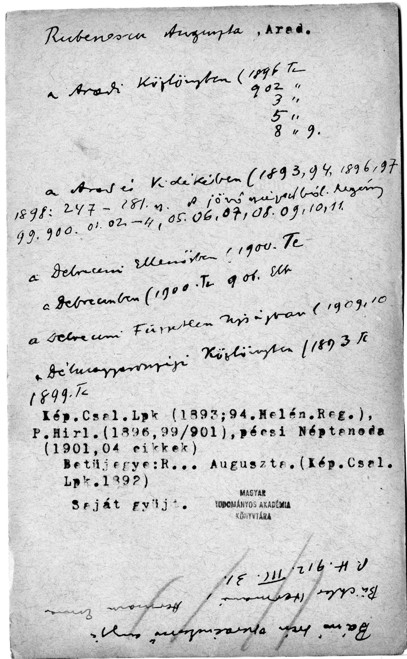 Rubenescu Auguszta, Arad.
a Aradi Közlönyben (1896 Te
902 "
3 "
5 "
8 " 9.
a Arad és Vidékében (1893, 94, 1896, 97
1898: 247 - 281. n. Regény
99. 900. 01. 02-4, 05. 06, 07, 08. 09, 10, 11.
a Debreceni Ellenőrben (1900. Te
a Debreczenben (1900. Te 906. Elb
a Debreceni Független Ujságban (1909, 10
a Délmagyarországi Közlönyben (1893 Te
1899. Te
Kép.Csal.Lpk (1893;94.Helén.Reg.),
P.Hirl.(1896,99/901),pécsi Néptanoda
(1901,04 cikkek)
Betüjegye:R... Auguszta.(Kép.Csal.
Lpk.1892)
Saját gyüjt.
MAGYAR
TUDOMÁNYOS AKADÉMIA
KÖNYVTÁRA
P. H. 912. III. 31.